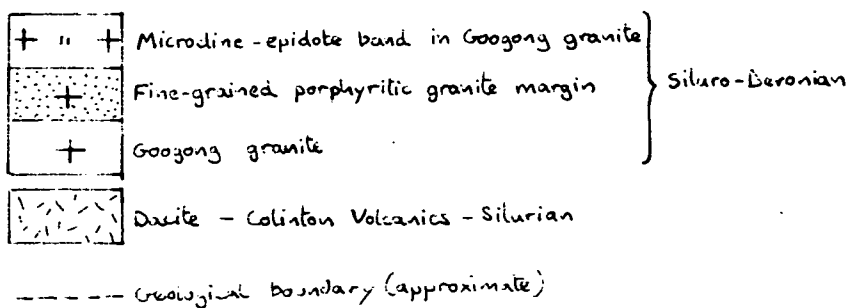 Microcline-epidote band in Googong granite
Fine-grained porphyritic granite margin
Siluro-Devonian
Googong granite
Dacite - Colinton Volcanics - Silurian
Geological boundary (approximate)